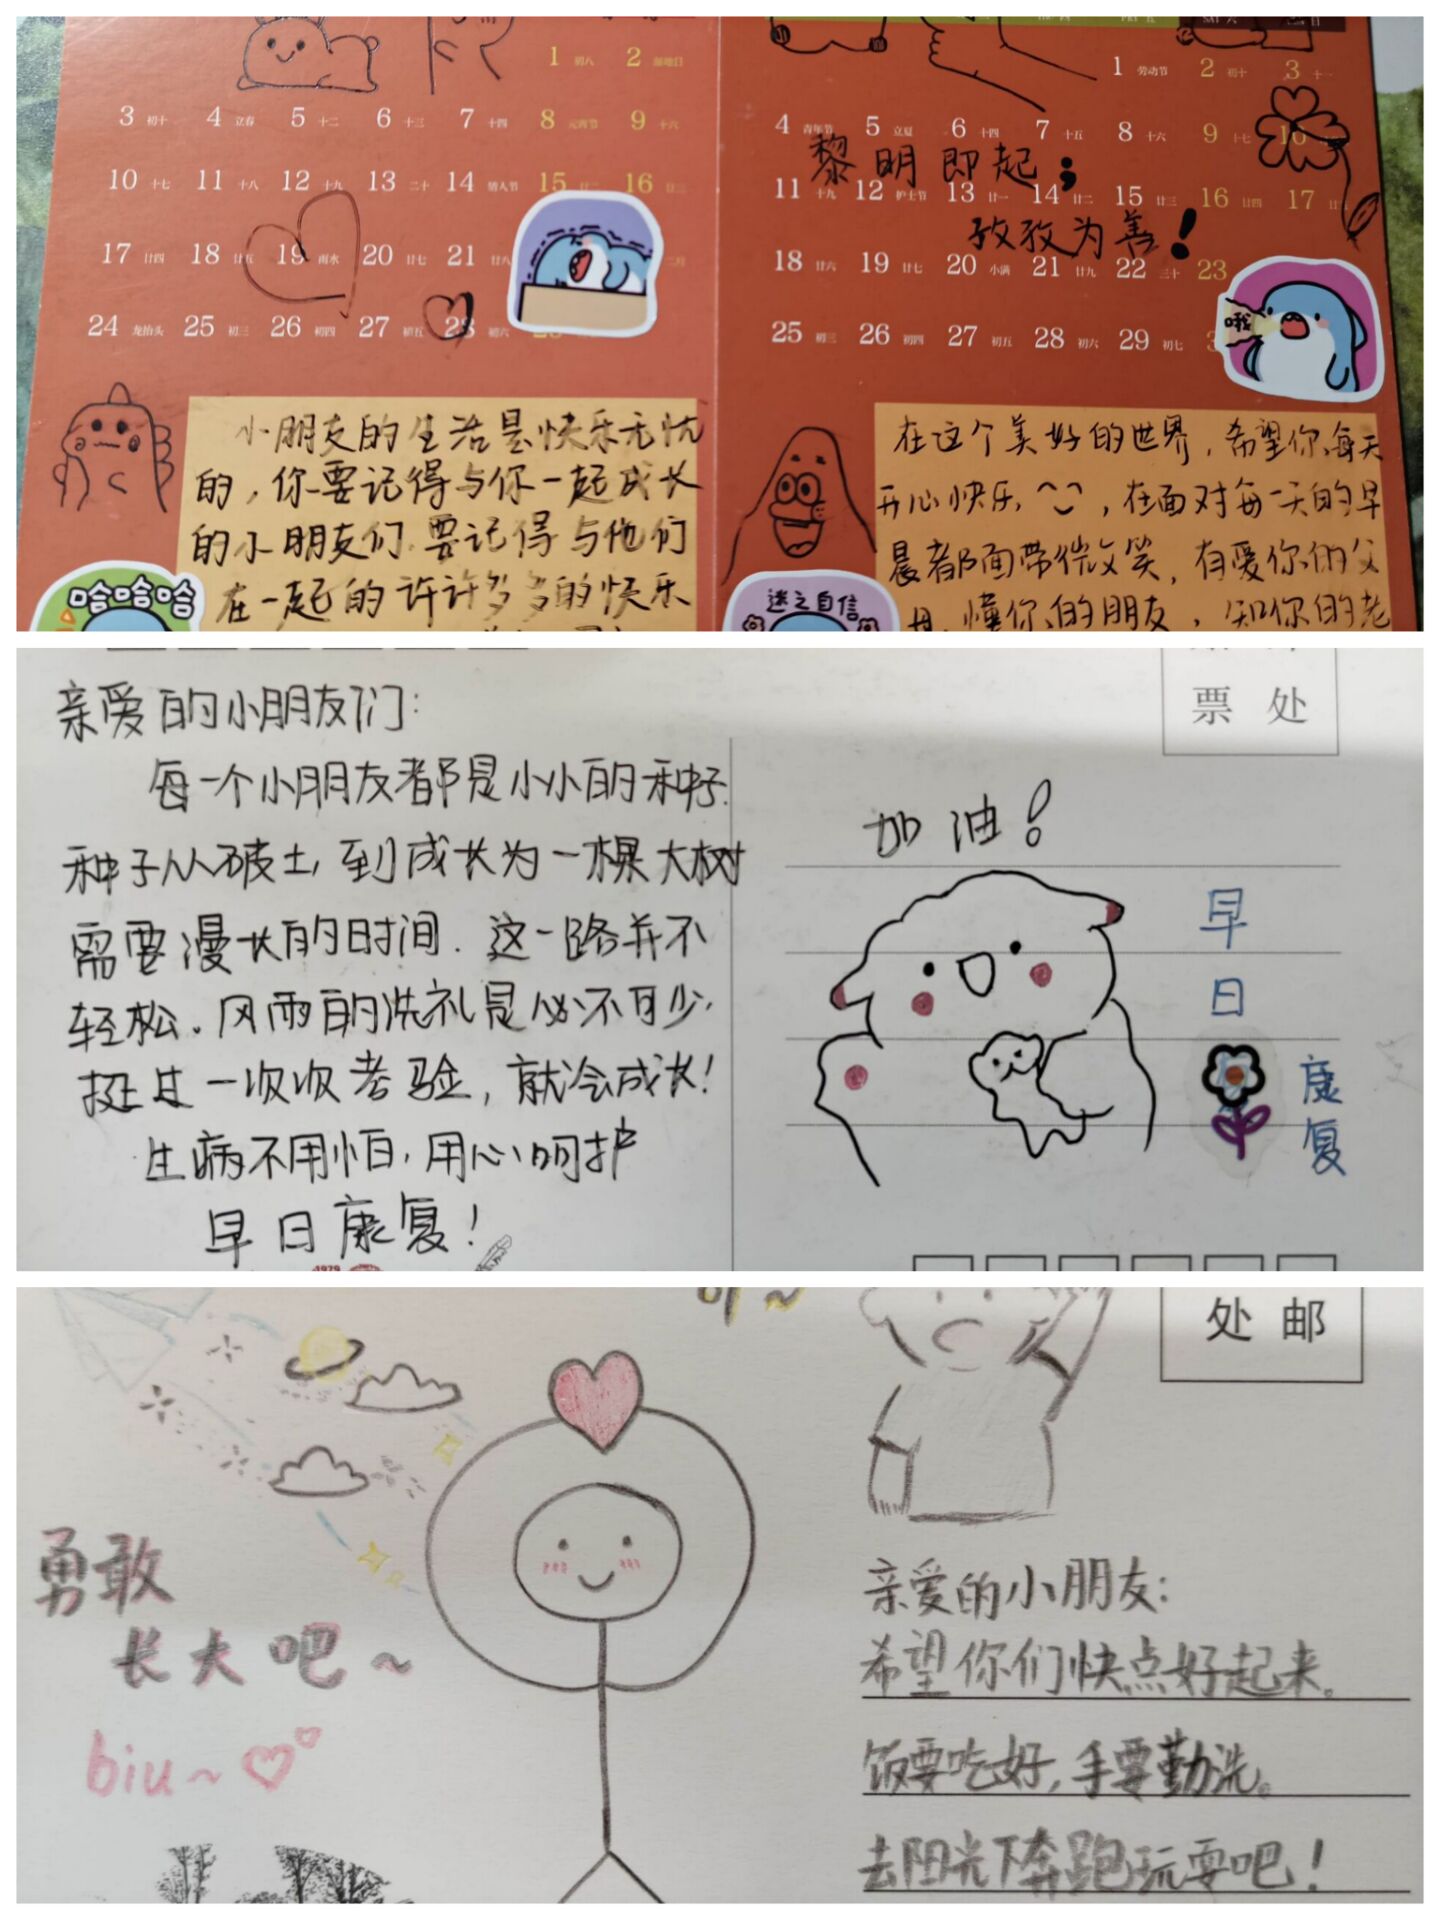 1 初八 2
3 初十 4 立春 5 十二 6 十三 7 十四 8 元宵节 9 十六
10 十七 11 十八 12 十九 13 二十 14 情人节 15 廿二 16 廿三
17 廿四 18 廿五 19 雨水 20 廿七 21 廿八
24 龙抬头 25 初三 26 初四 27 初五 28 初六
小朋友的生活是快乐无忧
的，你要记得与你一起成长
的小朋友们.要记得与他们
在一起的许许多多的快乐
哈哈哈
SAT 六 日
1 劳动节 2 初十 3 十一
4 青年节 5 立夏 6 十四 7 十五 8 十六 9 十七 10
黎明即起；
11 十九 12 护士节 13 廿一 14 廿二 15 廿三 16 廿四 17
孜孜为善！
18 廿六 19 廿七 20 小满 21 廿九 22 三十 23
哦
25 初三 26 初四 27 初五 28 初六 29 初七
在这个美好的世界，希望你每天
开心快乐，在面对每一天的早
晨都面带微笑，有爱你的父
母、懂你的朋友，知你的老
迷之自信
票处
亲爱的小朋友们：
每一个小朋友都是小小的种子.
种子从破土，到成长为一棵大树
需要漫长的时间.这一路并不
轻松。风雨的洗礼是必不可少.
挺过一次次考验，就会成长！
生病不用怕，用心呵护
早日康复！
1979
加油！
早
日
康
复
处邮
勇敢
长大吧~
biu~
亲爱的小朋友：
希望你们快点好起来。
饭要吃好，手要勤洗。
去阳光下奔跑玩耍吧！